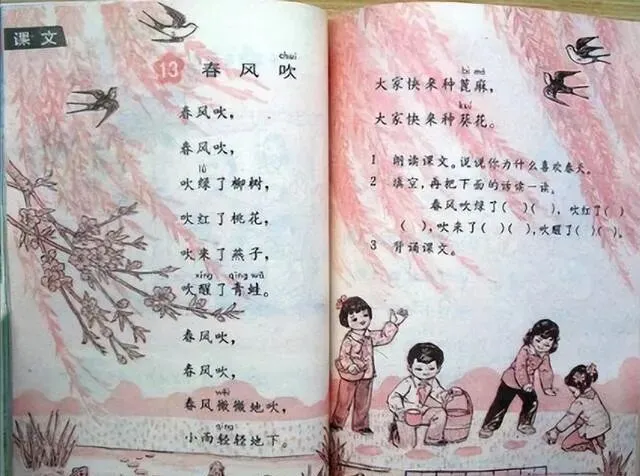 课文
13 春风吹
chuī
春风吹，
春风吹，
lǜ
吹绿了柳树，
吹红了桃花，
吹来了燕子，
xǐng qīng wā
吹醒了青蛙。
春风吹，
春风吹，
wēi
春风微微地吹，
qīng
小雨轻轻地下。
bì má
大家快来种蓖麻，
kuí
大家快来种葵花。
1 朗读课文。说说你为什么喜欢春天。
2 填空，再把下面的话读一读。
春风吹绿了( )( )，吹红了( )
( )，吹来了( )( )，吹醒了( )( )。
3 背诵课文。